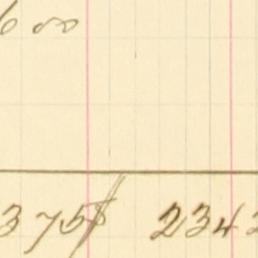 6 00
375 234